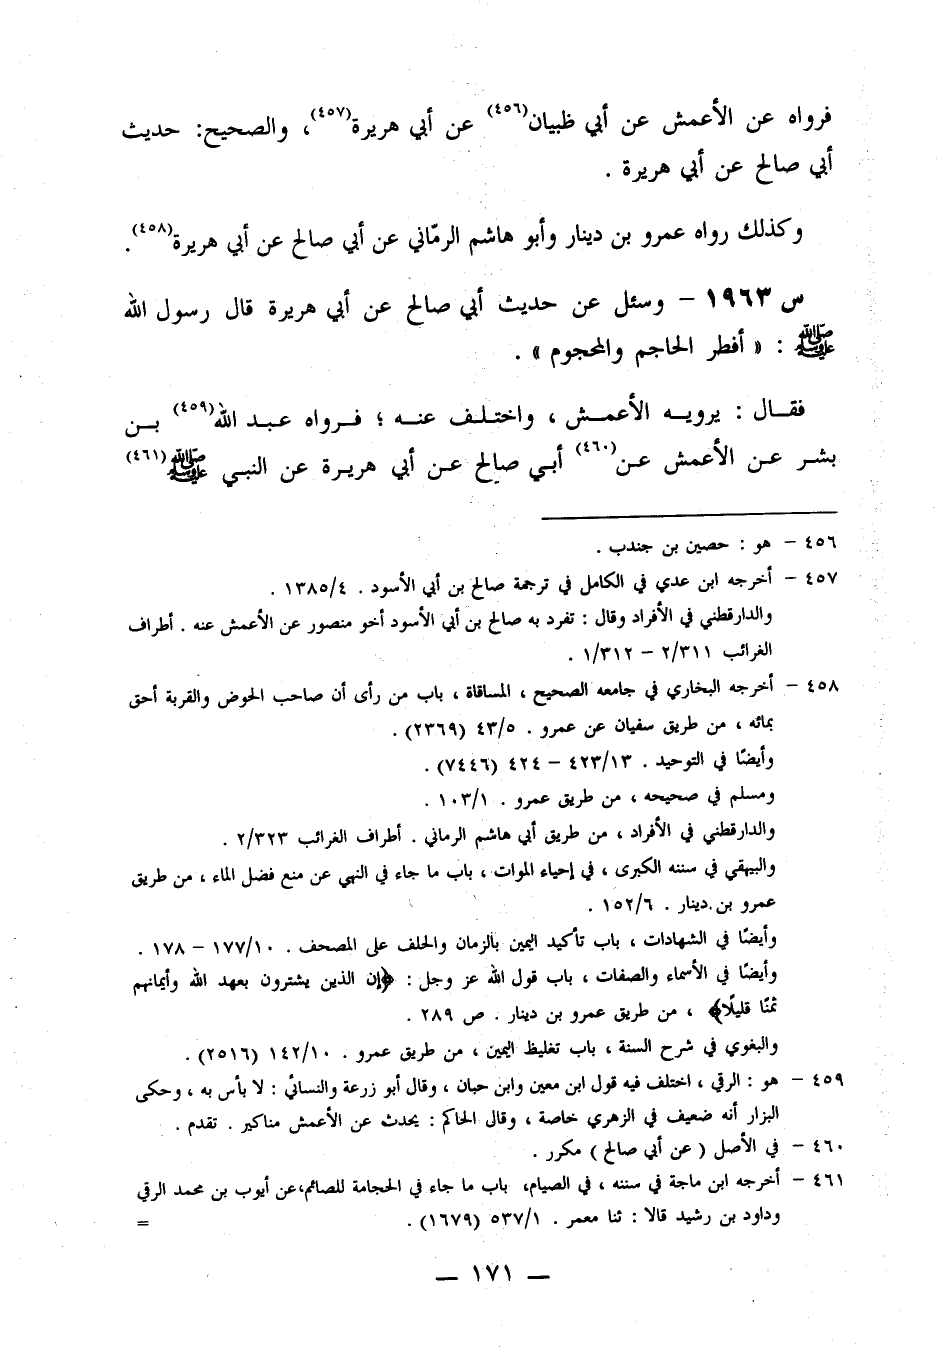 فرواه عن الأعمش عن أبي ظبيان(٤٥٦) عن أبي هريرة(٤٥٧)، والصحيح: حديث
أبي صالح عن أبي هريرة .
وكذلك رواه عمرو بن دينار وأبو هاشم الرمّاني عن أبي صالح عن أبي هريرة(٤٥٨).
س ١٩٦٣ – وسئل عن حديث أبي صالح عن أبي هريرة قال رسول الله
ﷺ : « أفطر الحاجم والمحجوم » .
فقال : يرويه الأعمش ، واختلف عنه ؛ فرواه عبد الله(٤٥٩) بن
بشر عن الأعمش عن(٤٦٠) أبي صالح عن أبي هريرة عن النبي ﷺ(٤٦١)
٤٥٦ – هو : حصين بن جندب .
٤٥٧ – أخرجه ابن عدي في الكامل في ترجمة صالح بن أبي الأسود . ١٣٨٥/٤ .
والدارقطني في الأفراد وقال : تفرد به صالح بن أبي الأسود أخو منصور عن الأعمش عنه . أطراف
الغرائب ٢/٣١١ – ١/٣١٢ .
٤٥٨ – أخرجه البخاري في جامعه الصحيح ، المساقاة ، باب من رأى أن صاحب الحوض والقربة أحق
بمائه ، من طريق سفيان عن عمرو . ٤٣/٥ (٢٣٦٩) .
وأيضًا في التوحيد . ٤٢٣/١٣ – ٤٢٤ (٧٤٤٦) .
ومسلم في صحيحه ، من طريق عمرو . ١٠٣/١ .
والدارقطني في الأفراد ، من طريق أبي هاشم الرماني . أطراف الغرائب ٢/٣٢٣ .
والبيهقي في سننه الكبرى ، في إحياء الموات ، باب ما جاء في النهي عن منع فضل الماء ، من طريق
عمرو بن دينار . ١٥٢/٦ .
وأيضًا في الشهادات ، باب تأكيد اليمين بالزمان والحلف على المصحف . ١٧٧/١٠ – ١٧٨ .
وأيضًا في الأسماء والصفات ، باب قول الله عز وجل : ﴿إن الذين يشترون بعهد الله وأيمانهم
ثمنًا قليلًا﴾ ، من طريق عمرو بن دينار . ص ٢٨٩ .
والبغوي في شرح السنة ، باب تغليظ اليمين ، من طريق عمرو . ١٤٢/١٠ (٢٥١٦) .
٤٥٩ – هو : الرقي ، اختلف فيه قول ابن معين وابن حبان ، وقال أبو زرعة والنسائي : لا بأس به ، وحكى
البزار أنه ضعيف في الزهري خاصة ، وقال الحاكم : يحدث عن الأعمش مناكير . تقدم .
٤٦٠ – في الأصل ( عن أبي صالح ) مكرر .
٤٦١ – أخرجه ابن ماجة في سننه ، في الصيام، باب ما جاء في الحجامة للصائم،عن أيوب بن محمد الرقي
وداود بن رشيد قالا : ثنا معمر . ٥٣٧/١ (١٦٧٩) . =
— ١٧١ —